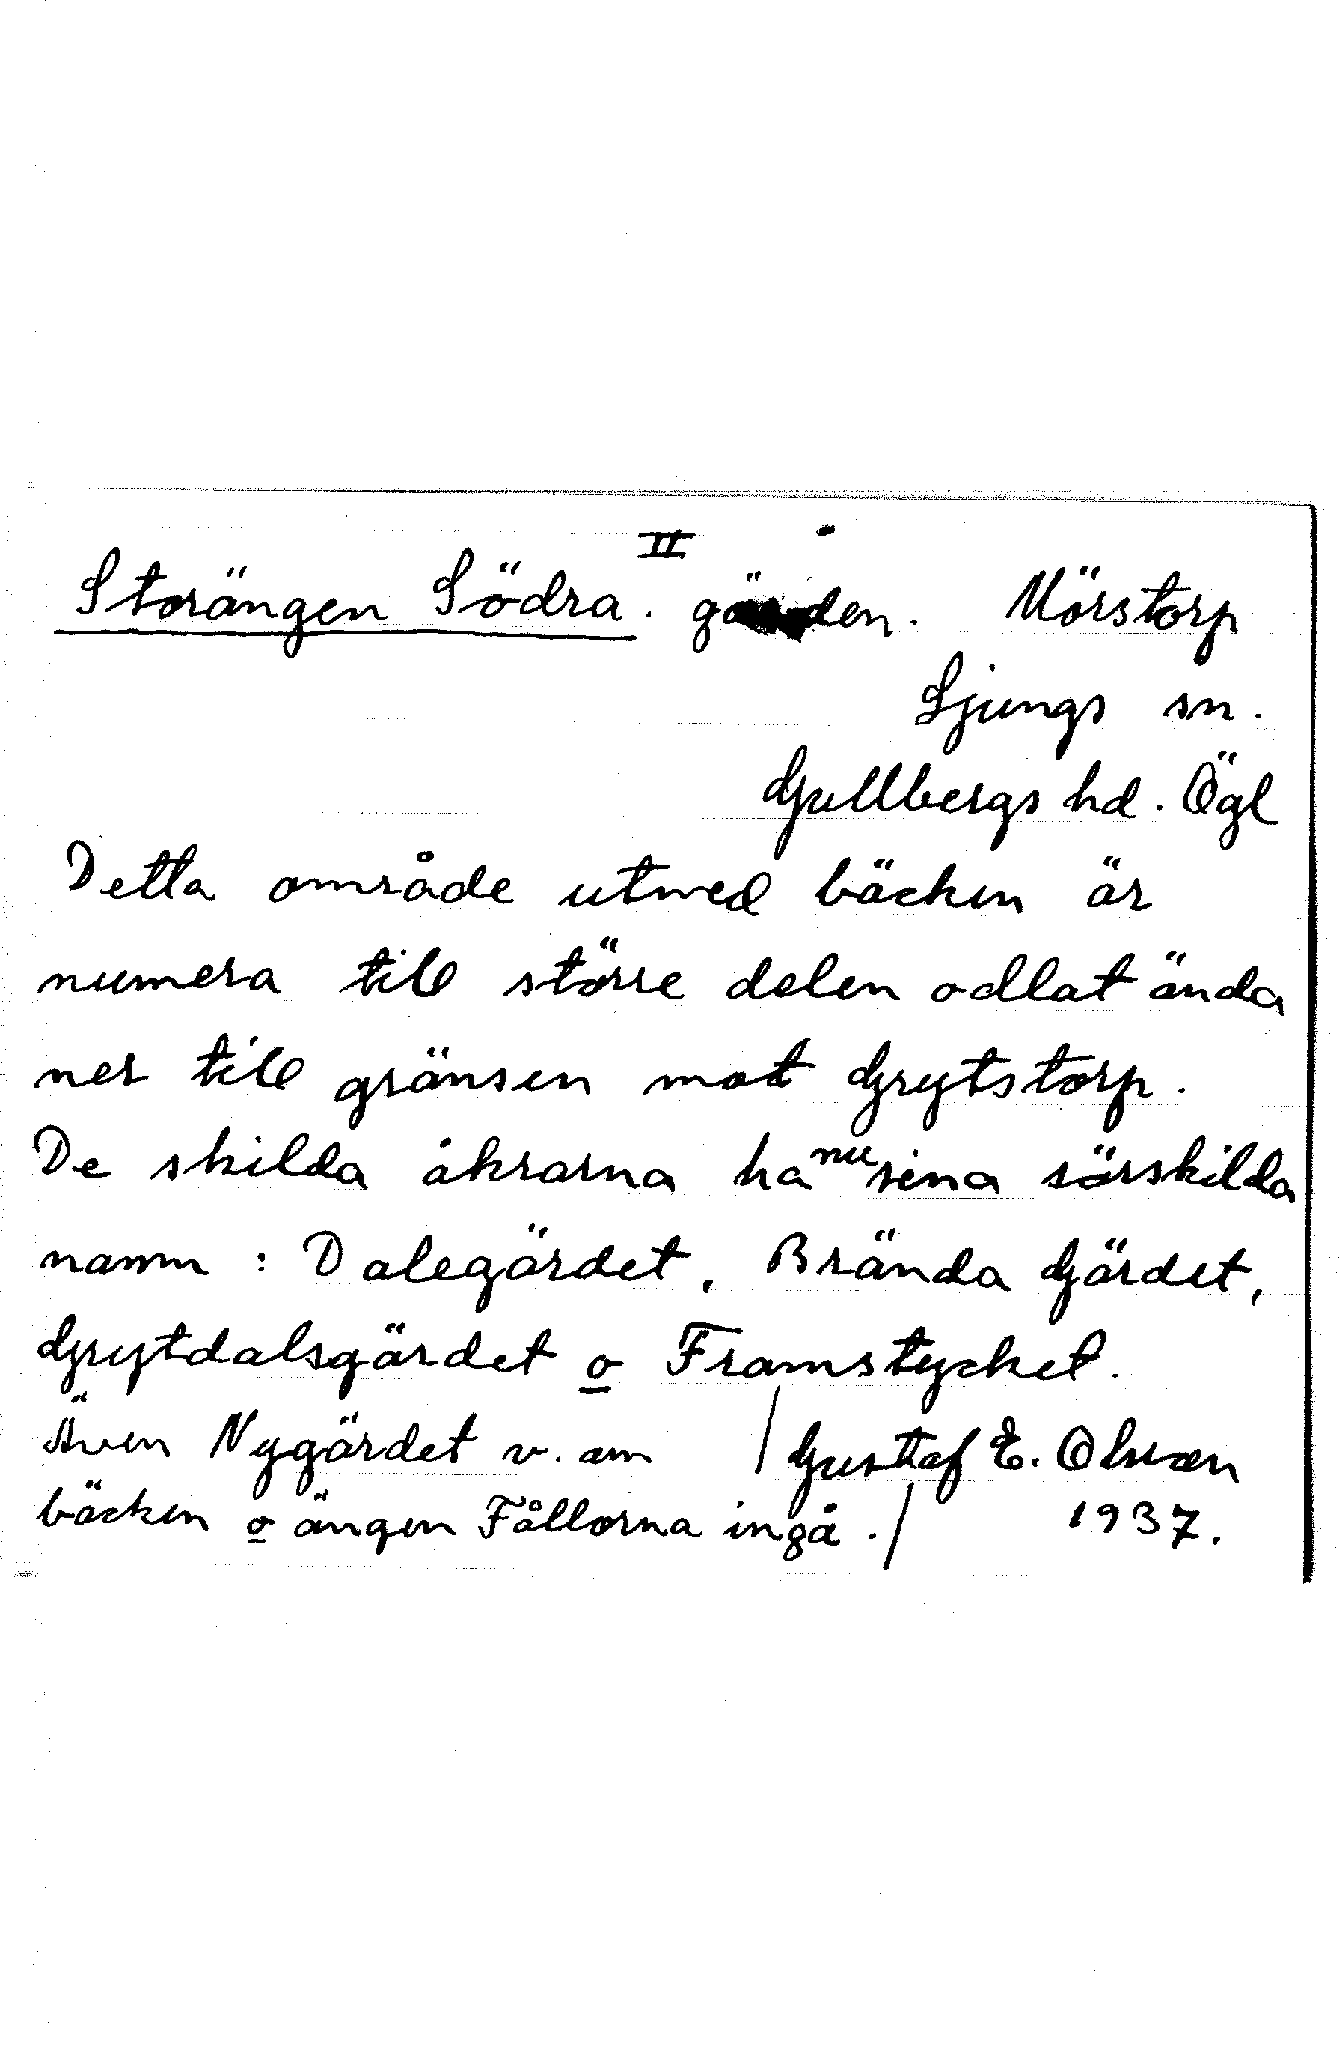 II
Storängen Södra. gärden. Mörstorp
Ljungs sn.
Gullbergs hd. Ögl
Detta område utmed bäcken är
numera till större delen odlat ända
ner till gränsen mot Grytstorp.
De skilda åkrarna ha nu sina särskilda
namn : Dalegärdet, Brända Gärdet,
Grytdalsgärdet o Framstycket.
Även Nygärdet v. om / Gustaf E. Olsson
bäcken o ängen Fållorna ingå. / 1937.